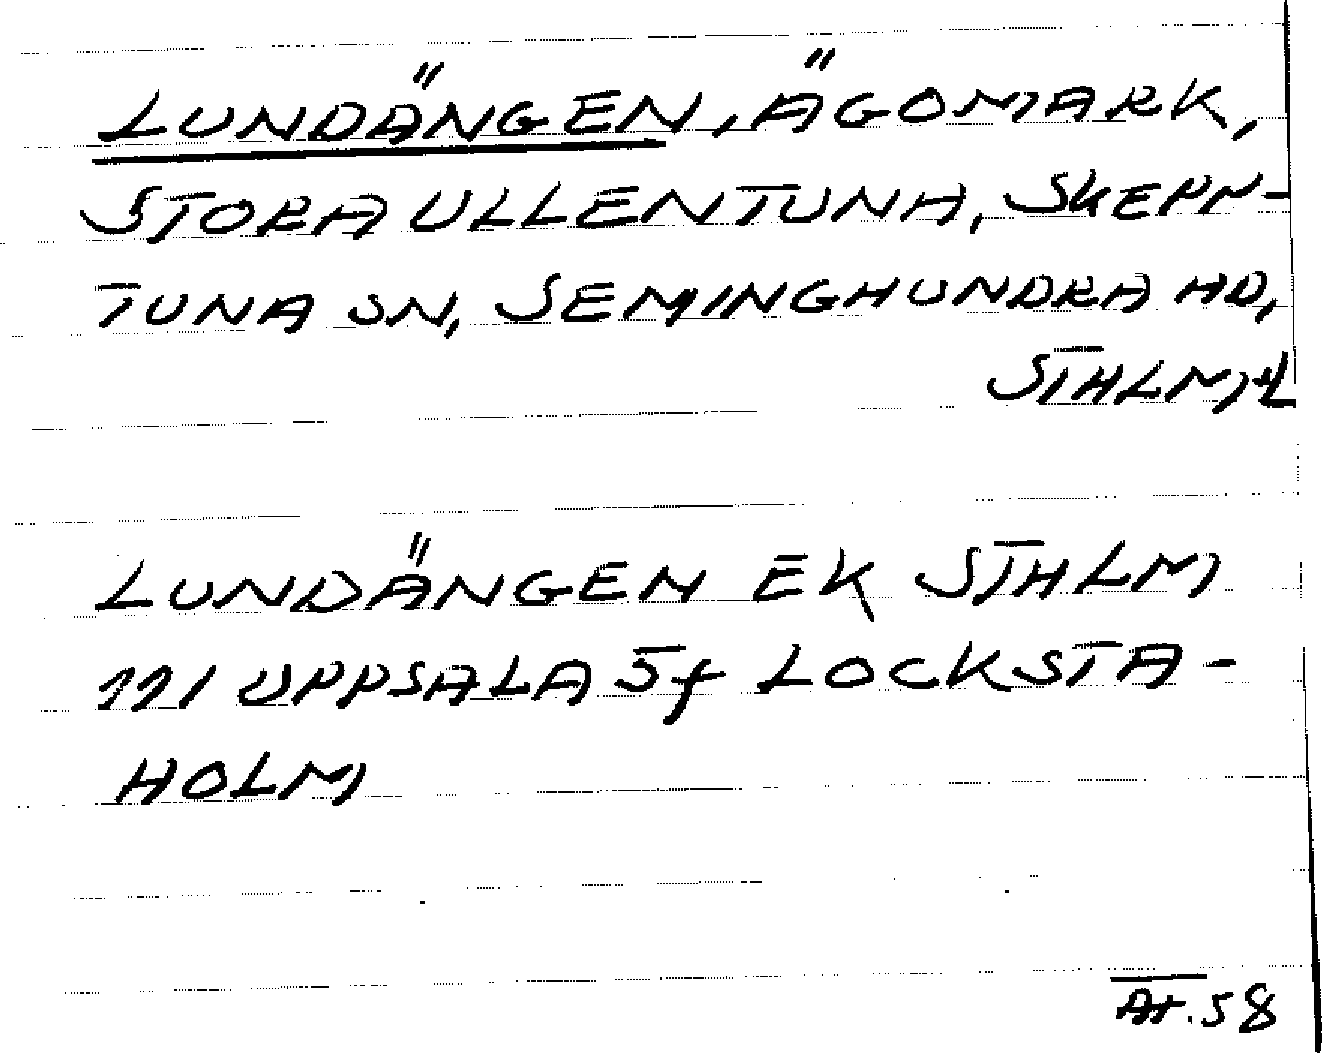 LUNDÄNGEN, ÄGOMARK,
STORA ULLENTUNA, SKEPP-
TUNA SN, SEMINGHUNDRA HD,
STHLM:L
LUNDÄNGEN EK STHLM
11I UPPSALA 5f LOCKSTA-
HOLM
At. 58